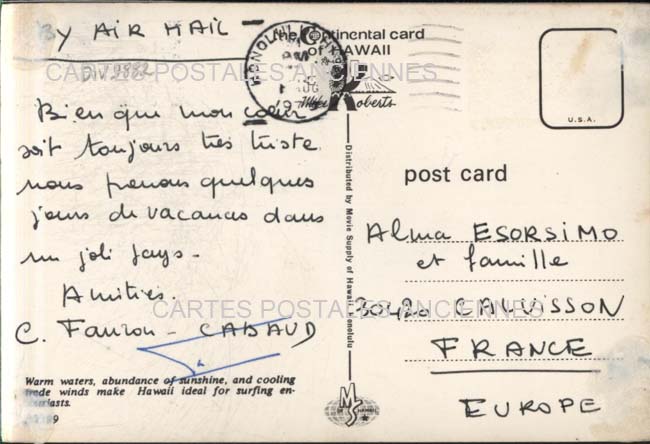 BY AIR MAIL
DIV.9882
CARTES POSTALES ANCIENNES
Bien que mon cœur
soit toujours très triste
nous prenons quelques
jours de vacances dans
un joli pays -
Amitiés.
C. - CABAUD
Warm waters, abundance of sunshine, and cooling
trade winds make Hawaii ideal for surfing en-
thusiasts.
the Continental card
of HAWAII
HONOLULU
PM
AUG
Mike Roberts
Distributed by Movie Supply of Hawaii, Honolulu
U.S.A.
post card
Alma ESORSIMO
et famille
30420 CALVISSON
CARTES POSTALES ANCIENNES
FRANCE
EUROPE
MS
HAWAII